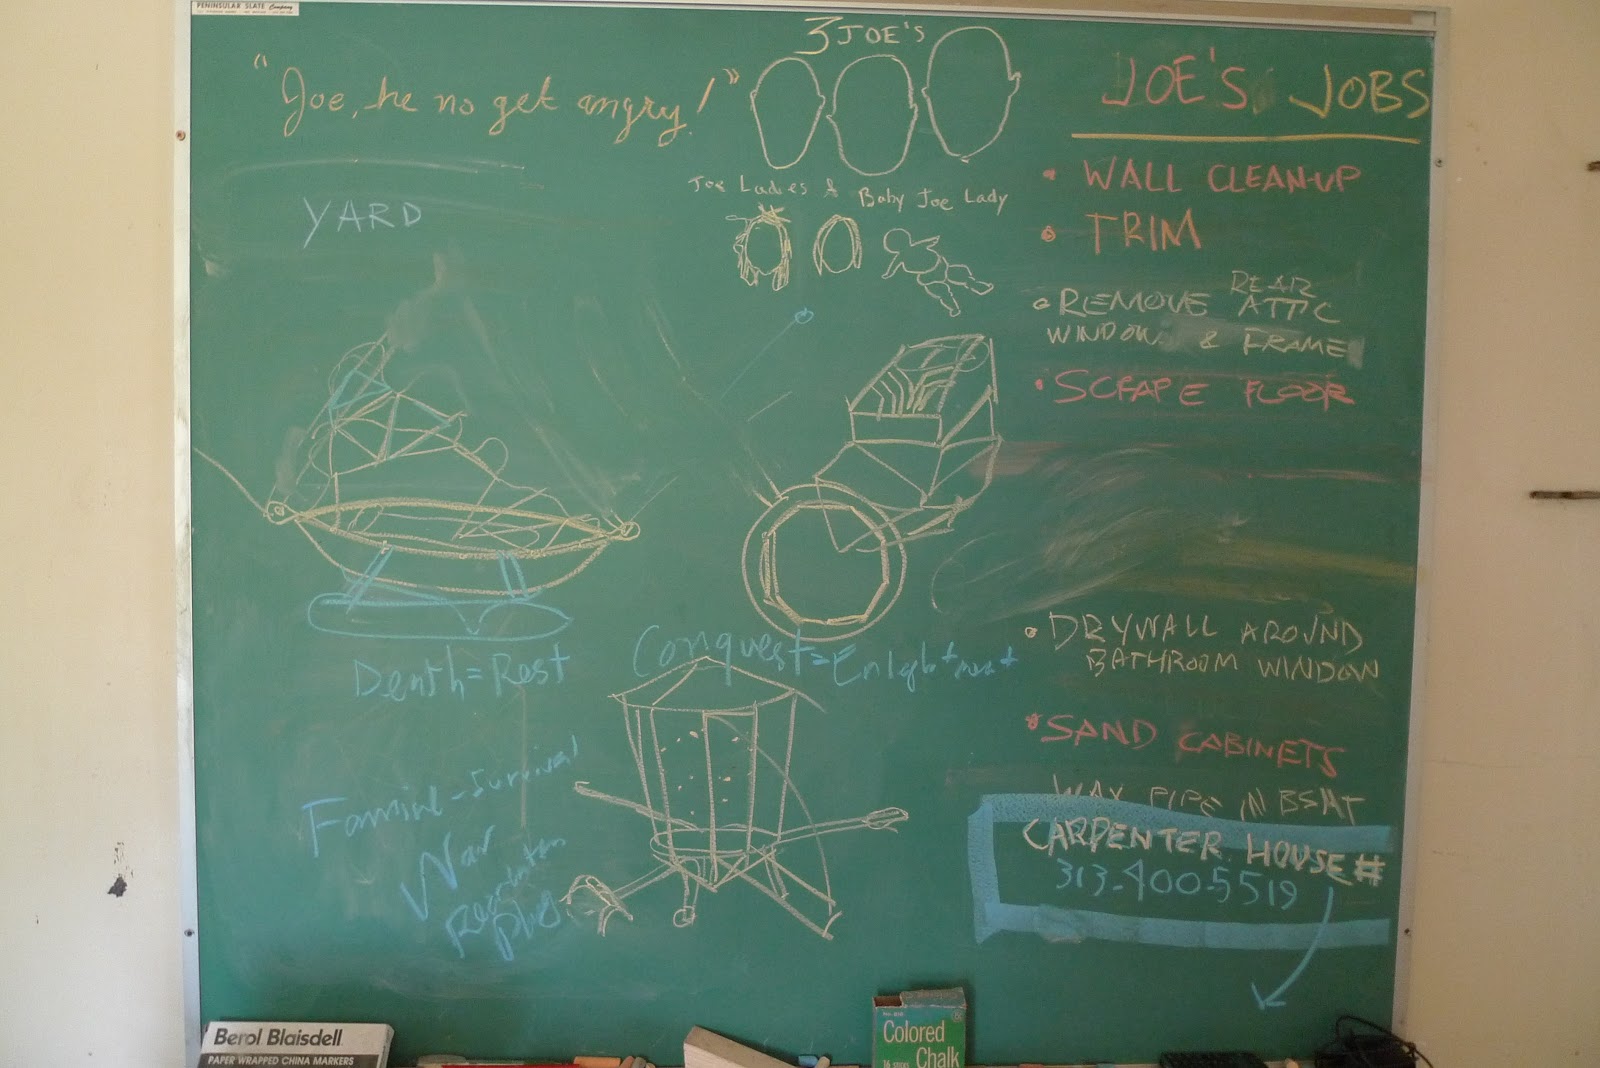 PENINSULAR SLATE Company
3 JOE'S
"Joe, he no get angry!"
JOE'S JOBS
• WALL CLEAN-UP
• TRIM
• REMOVE REAR ATTIC
WINDOW & FRAME
• SCRAPE FLOOR
• DRYWALL AROUND
BATHROOM WINDOW
• SAND CABINETS
WAX PIPE IN BSMT
CARPENTER HOUSE #
313-400-5519
Joe Ladies & Baby Joe Lady
YARD
Death = Rest
Conquest = Enlightment
Famine - Survival
War
Berol Blaisdell
PAPER WRAPPED CHINA MARKERS
Colored
Chalk